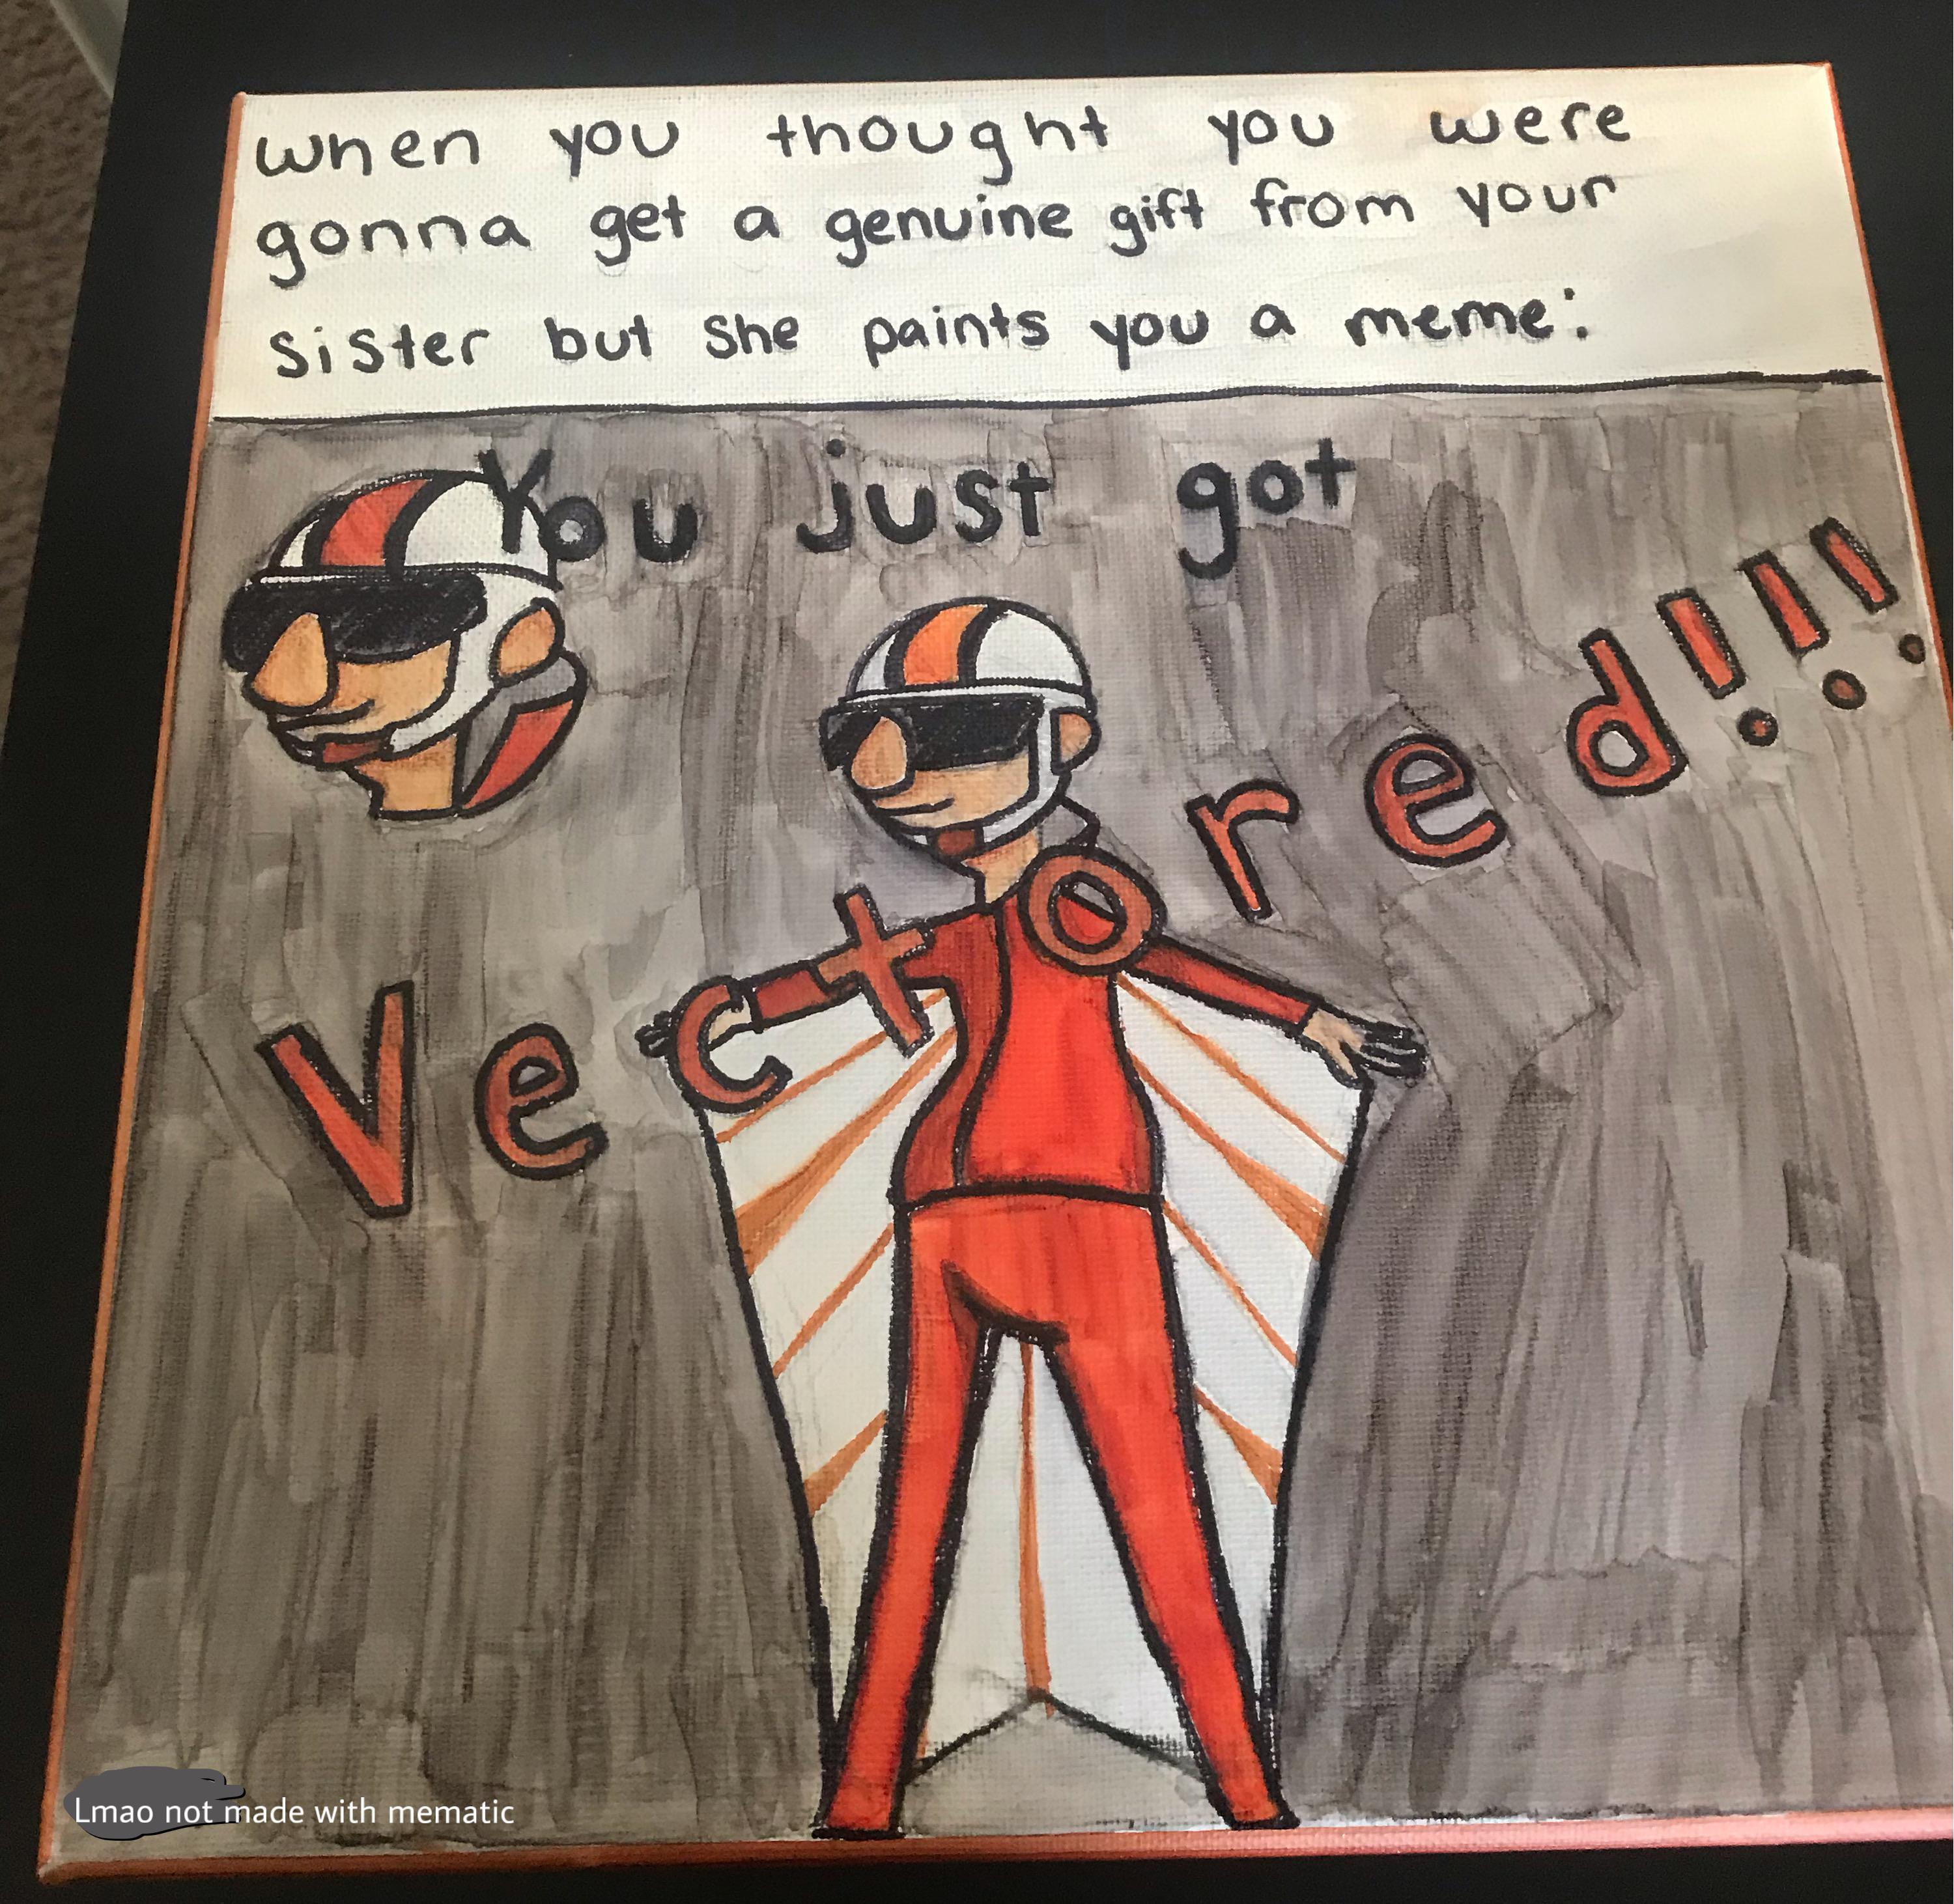 when you thought you were
gonna get a genuine gift from your
sister but she paints you a meme:
You just got
Vectored!!!
Lmao not made with mematic